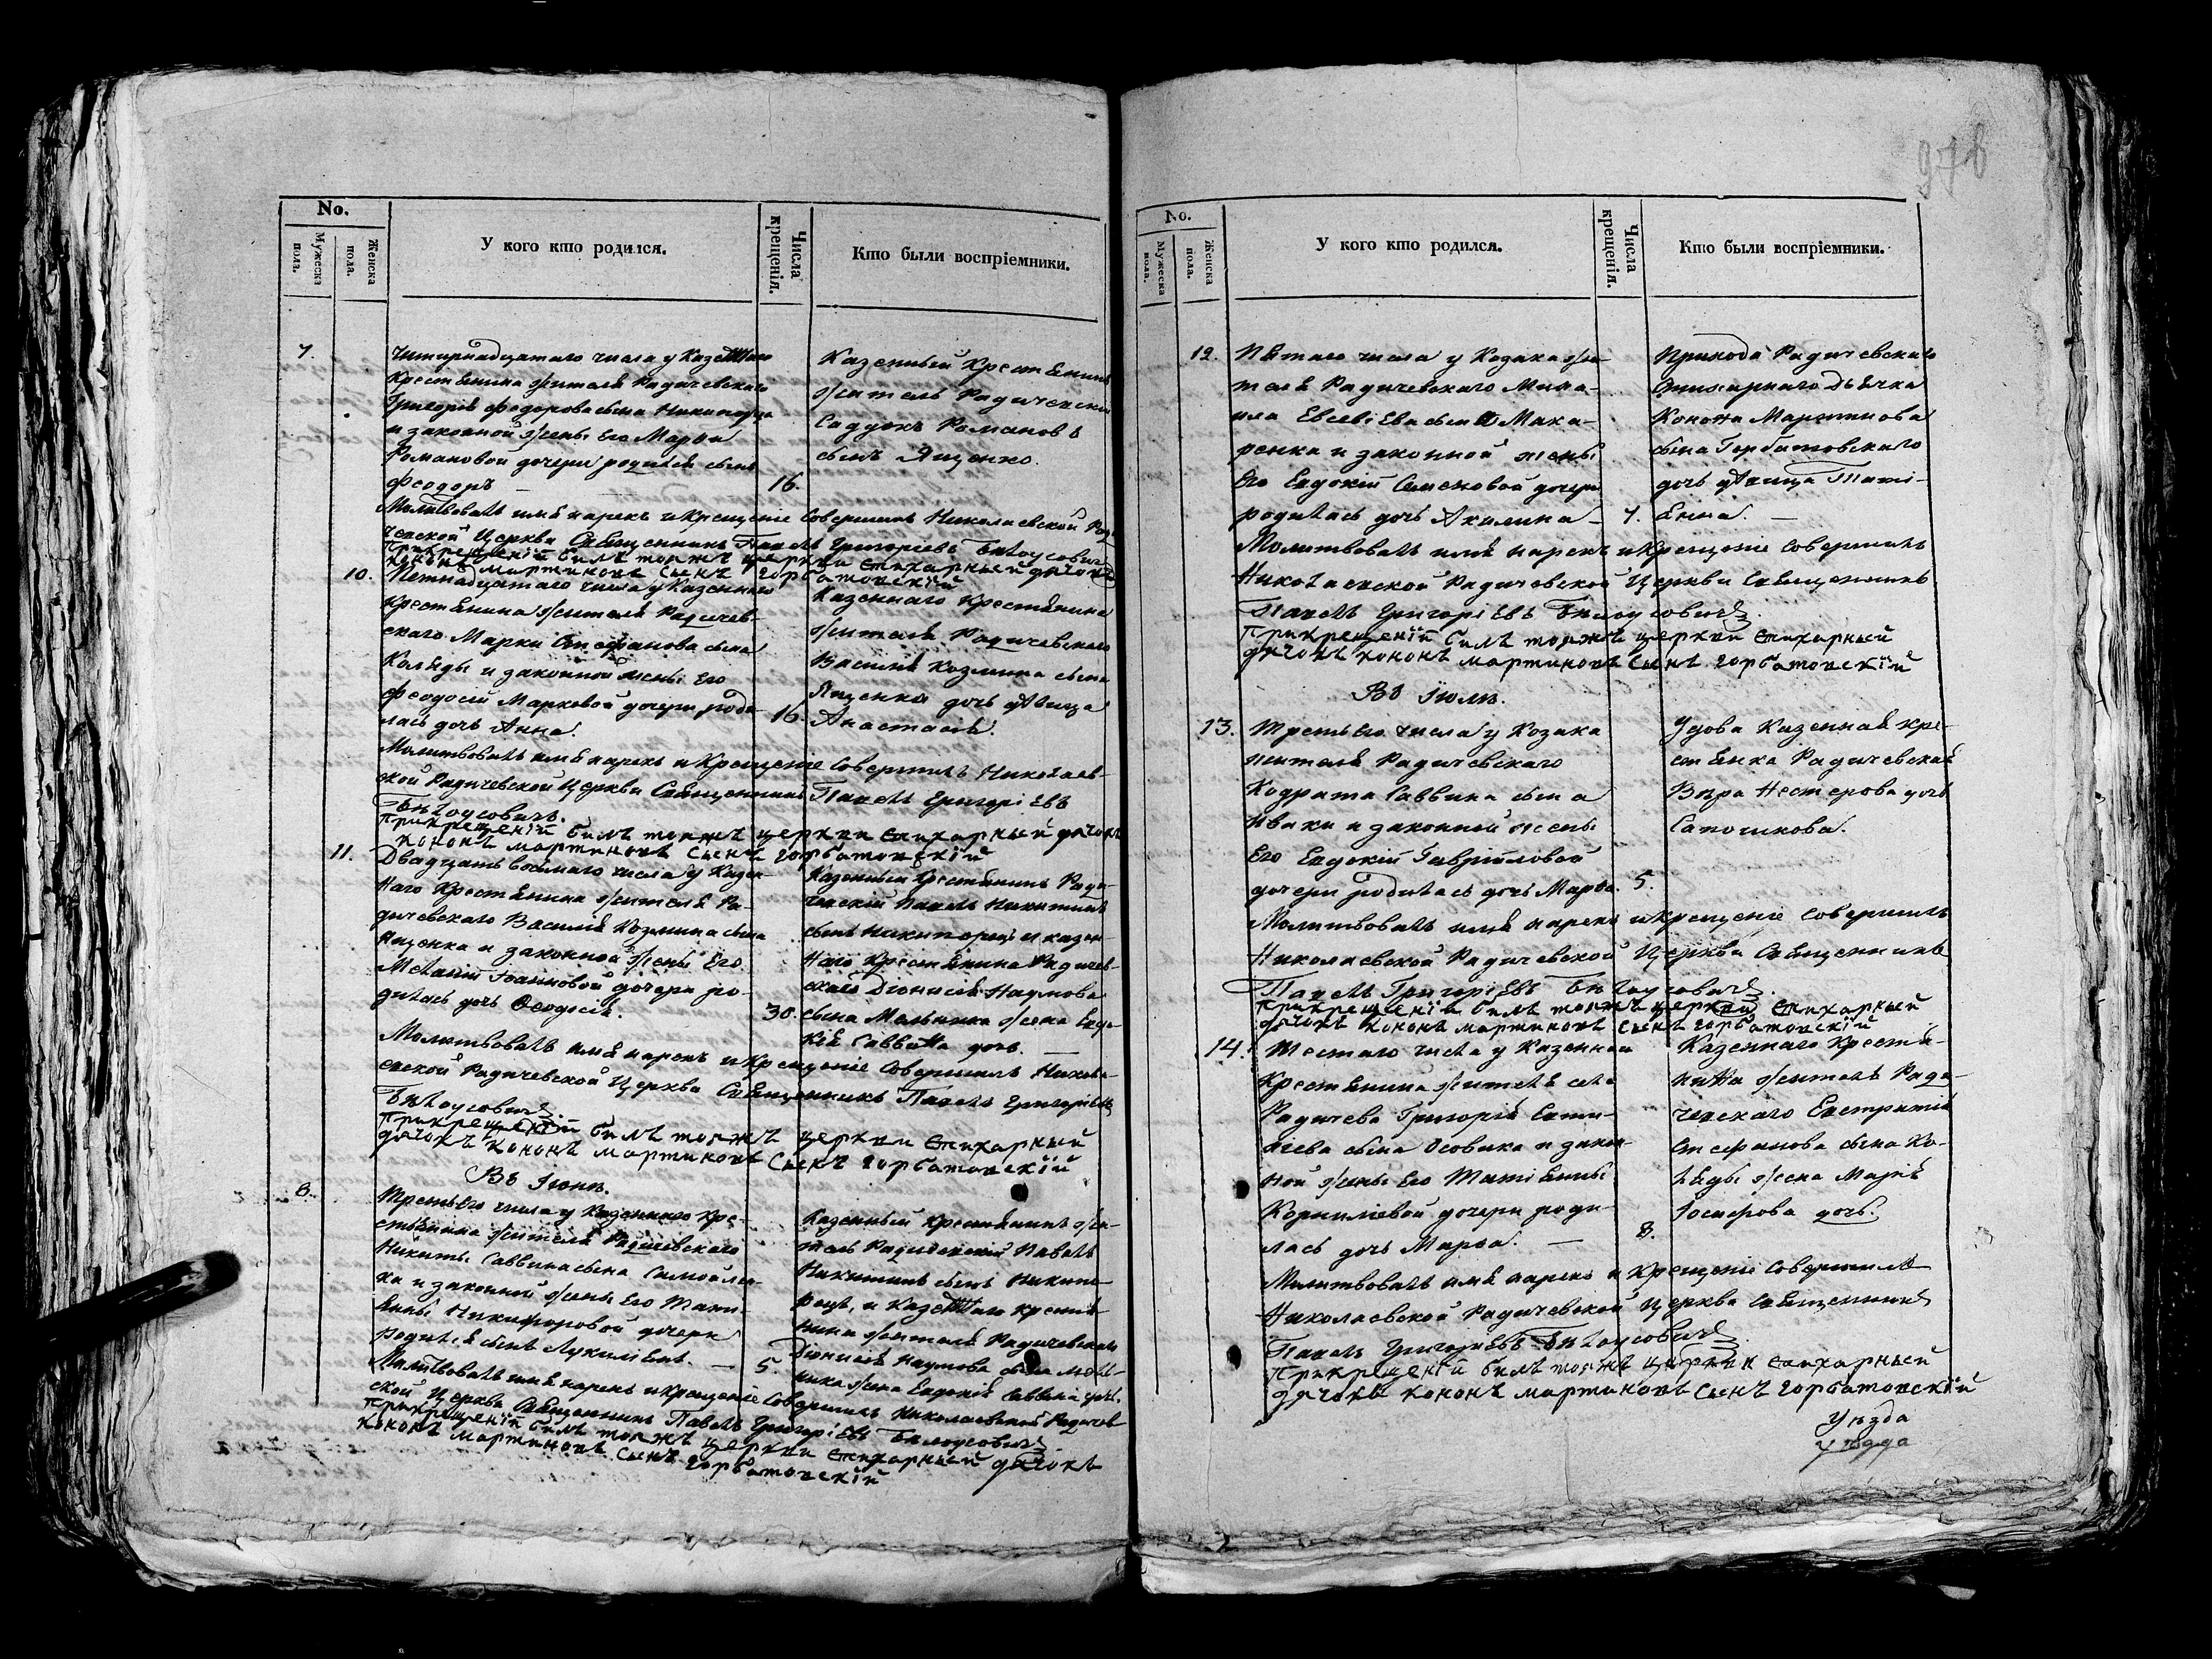 No.
Мужеска пола.
Женска пола.
У кого кто родился.
Числа крещенія.
Кто были воспріемники.
7.
Читирнадцатаго числа у Казеннаго
Крестянина жителя Радичевскаго
Григорія Федорова сына Никипорца
и законной жены его Марѳи
Романовой дочери родился сынъ
Феодоръ
16.
Казенный Крестянинъ
житель Радичевскій
Романовъ
сынъ Ященко.
Молитвовалъ имя нарекъ и крещеніе Совершилъ Николаевской
Церкви Священникъ Павелъ Григоріевъ Бѣлоусовичъ
Прикрещеніи билъ тояжъ церкви стихарный дячокъ
Кононъ мартиновъ Сынъ горбатовскїй
10.
Петнадцатаго числа у Казеннаго
Крестянина жителя Радичев-
скаго Марка Стефанова сына
Каляды и законной жены его
Феодосіи Марковой дочери роди-
лась дочь Анна.
16.
Казеннаго Крестянина
жителя Радичевскаго
Василія Козмина сына
Ященка дочь дѣвица
Анастасія.
Молитвовалъ имя нарекъ и Крещеніе Совершилъ Николаев-
ской Радичевской Церкви Священникъ Павелъ Григоріевъ
Бѣлоусовичъ.
Прикрещеніи билъ тояжъ церкви стихарный дячокъ
кононъ мартиновъ Сынъ горбатовскїй
11.
Двадцать восмаго числа у Казен-
наго Крестянина жителя Ра-
дичевскаго Василія Козмина сына
Ященка и законной жены Его
Меланіи Іоанновой дочери ро-
дилась дочь Феодосія.
30.
Казенный Крестянинъ Ради-
чевскій Павелъ Никитинъ
сынъ Никипорецъ и казен-
наго Крестянина Радичев-
скаго Діонисія Наумова
сына Мельника жена Евдо-
кія Саввина дочь.
Молитвовалъ имя нарекъ и Крещеніе Совершилъ Никола-
евской Радичевской Церкви Священникъ Павелъ Григоріевъ
Бѣлоусовичъ.
Прикрещеніи билъ тояжъ церкви стихарный
дячокъ Кононъ мартиновъ Сынъ горбатовскїй
Въ Іюнѣ.
8.
Третьего числа у Казеннаго Кре-
стьянина жителя Радичевскаго
Никиты Саввина сына Самойлен-
ка и законной жены Его Тати-
яны Никифоровой дочери
родился сынъ Лукиліянъ.
5.
Казенный Крестянинъ жи-
тель Радичевскій Павелъ
Никитинъ сынъ Никипо-
рецъ, и Казеннаго Крестья-
нина жителя Радичевскаго
Діонисія Наумова сына Мель-
ника жена Евдокія Саввина дочь.
Молитвовалъ имя нарекъ и крещеніе Совершилъ Николаевской Радичев-
ской Церкви Священникъ Павелъ Григоріевъ Бѣлоусовичъ
Прикрещеніи билъ тояжъ церкви стихарный дячокъ
Кононъ мартиновъ Сынъ горбатовскїй
No.
Мужеска пола.
Женска пола.
У кого кто родился.
Числа крещенія.
Кто были воспріемники.
12.
Пятаго числа у Козака жи-
теля Радичевскаго Миха-
ила Евсевіева сына Мака-
ренка и законной жены
Его Евдокіи Семеновой дочери
родилась дочь Акилина
7.
Прихода Радичевскаго
Стихарнаго Дьячка
Конона Мартинова
сына Горбатовскаго
дочь дѣвица Тати-
янна.
Молитвовалъ имя нарекъ и Крещеніе Совершилъ
Николаевской Радичевской Церкви Священникъ
Павелъ Григоріевъ Бѣлоусовичъ
Прикрещеніи билъ тояжъ церкви стихарный
дячокъ кононъ мартиновъ Сынъ горбатовскїй
Въ Іюлѣ.
13.
Третьего числа у Козака
жителя Радичевскаго
Кодрата Саввина сына
Ивахи и законной жены
Его Евдокіи Гавріиловой
дочери родилась дочь Марѳа.
5.
Удова Казенная кре-
стянка Радичевская
Вѣра Нестерова дочь
Сапочикова.
Молитвовалъ имя нарекъ и Крещеніе Совершилъ
Николаевской Радичевской Церкви Священникъ
Павелъ Григоріевъ Бѣлоусовичъ.
Прикрещеніи билъ тояжъ церкви стихарный
дячокъ Кононъ мартиновъ Сынъ горбатовскїй
14.
Шестаго числа у Казеннаго
Крестянина жителя села
Радичева Григорія Евти-
хіева сына Осовика и закон-
ной жены Его Татіянны
Корниліевой дочери роди-
лась дочь Марѳа.
8.
Казеннаго Крестя-
нина жителя Ради-
чевскаго Евстратія
Стефанова сына Ка-
ляды жена Марія
Іосифова дочь.
Молитвовалъ имя нарекъ и Крещеніе Совершилъ
Николаевской Радичевской Церкви Священникъ
Павелъ Григоріевъ Бѣлоусовичъ
Прикрещеніи билъ тояжъ церкви стихарный
дячокъ кононъ мартиновъ Сынъ горбатовскїй
Уѣзда